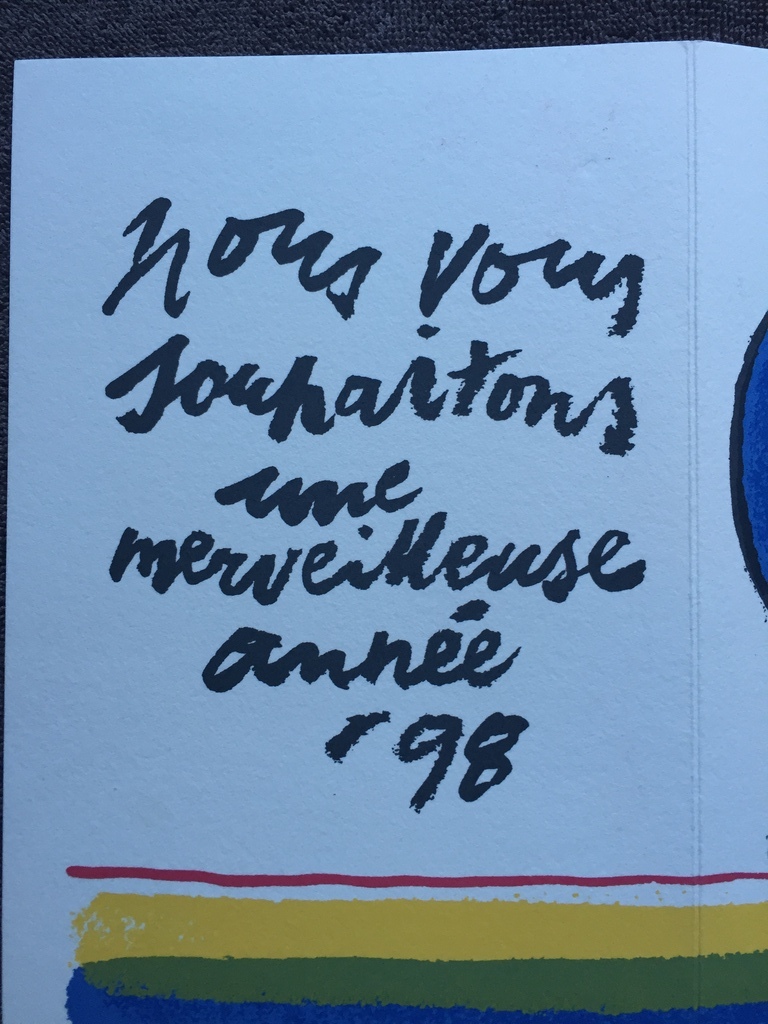 nous vous
souhaitons
une
merveilleuse
année
'98